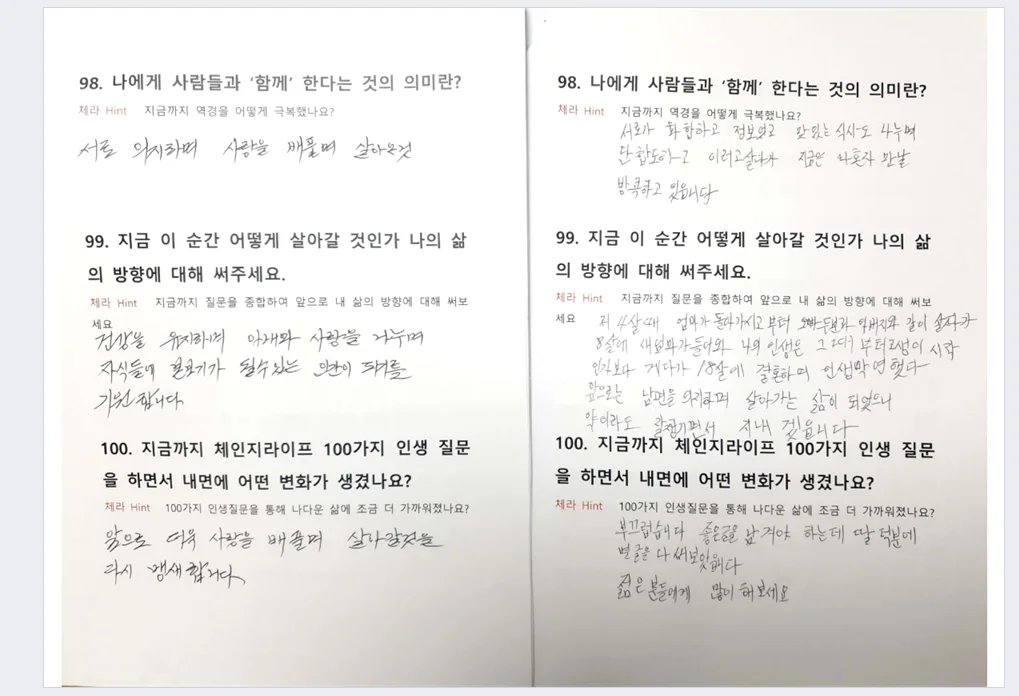 98. 나에게 사람들과 ‘함께’ 한다는 것의 의미란?
체라 Hint 지금까지 역경을 어떻게 극복했나요?
서로 의지하며 사랑을 베풀며 살아온것
99. 지금 이 순간 어떻게 살아갈 것인가 나의 삶
의 방향에 대해 써주세요.
체라 Hint 지금까지 질문을 종합하여 앞으로 내 삶의 방향에 대해 써보
세요
건강을 유지하며 아내와 사랑을 나누며
자식들에 되기를
기원 합니다
100. 지금까지 체인지라이프 100가지 인생 질문
을 하면서 내면에 어떤 변화가 생겼나요?
체라 Hint 100가지 인생질문을 통해 나다운 삶에 조금 더 가까워졌나요?
앞으로 더욱 사랑을 베풀며 살아갈것을
다시 맹새합니다
98. 나에게 사람들과 ‘함께’ 한다는 것의 의미란?
체라 Hint 지금까지 역경을 어떻게 극복했나요?
서로가 화합하고 정보얻고 맛있는 식사도 나누며
단합도하고 이러고살다가 지금은 나혼자 만날
방콕하고 있읍니다
99. 지금 이 순간 어떻게 살아갈 것인가 나의 삶
의 방향에 대해 써주세요.
체라 Hint 지금까지 질문을 종합하여 앞으로 내 삶의 방향에 대해 써보
세요
제 4살때 엄마가 돌아가시고부터 오빠두분과 아버지와 같이 살다가
8살에 새엄마가들어와 나의 인생은 그때부터고생이 시작
게다가 18살에 결혼하여 인생막연했다
앞으로는 남편을 의지하며 살아가는 삶이 되었으니
약이라도 잘챙기면서 지내 겠읍니다
100. 지금까지 체인지라이프 100가지 인생 질문
을 하면서 내면에 어떤 변화가 생겼나요?
체라 Hint 100가지 인생질문을 통해 나다운 삶에 조금 더 가까워졌나요?
부끄럽습니다 좋은글을 남겨야 하는데 딸 덕분에
별글을 다 써보았읍니다
젊은 분들에게 많이 해보세요